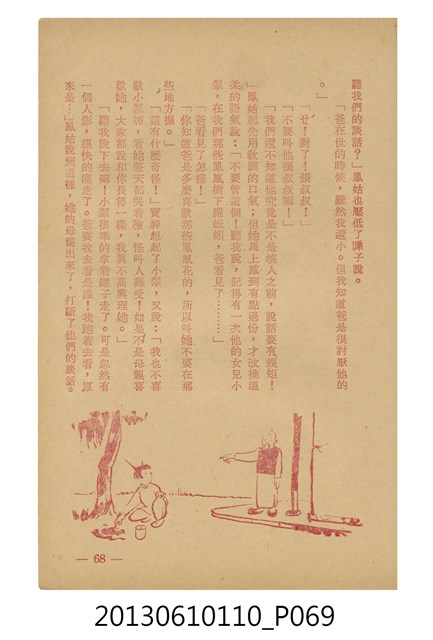 聽我們的談話？」鳳姑也壓低了嗓子說。
「爸在世的時候，雖然我還小。但我知道爸是很討厭他的
。」
「ㄝ！對了！張叔叔！」
「不要叫他張叔叔嘛！」
「我們還不知道他究竟是不是壞人之前，說話要有規矩！
」鳳姑起先用教訓的口氣；但她馬上感到有點過份，才改換溫
柔的語氣說：「不要管這個！聽我說，記得有一次他的女兒小
翠，在我們那些鳳凰樹下掘蚯蚓，爸看見了………」
「爸看見了怎樣！」
「你知道爸是多麼喜歡那些鳳凰花的，所以叫她不要在那
些地方掘。」
「這有什麼奇怪！」寶祥想起了小翠，又說：「我也不喜
歡小翠姊，看她整天都哭着臉，怪叫人難受！如果不是母親喜
歡她，大家都說和你長得一樣，我眞不高興理她。」
「聽我說下去嘛！小翠很乖的拿着罐子走了。可是忽然有
一個人影，很快的溜走了。爸要我去看是誰！我跑着去看，原
來是…」鳳姑說到這裡，她的母親出來了，打斷了他們的談話。
— 68 —
20130610110_P069